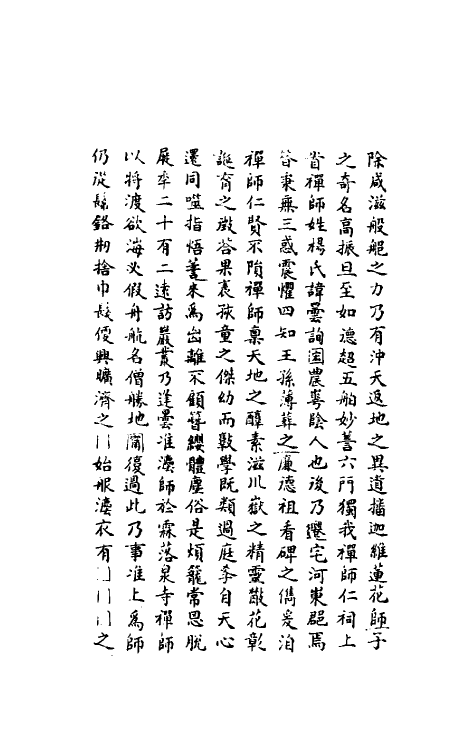 除咸滋般䑓之力乃有沖天返地之異道播迦維蓮花師子
之奇名高振旦至如德超五舶妙善六門獨我禪師仁祠上
首禪師姓楊氏諱曇詢國農粤陰人也後乃遷宅河東郡焉
昔秉無三惑震懼四知王孫薄葬之廉德祖看碑之儁爰洎
禪師仁賢不隕禪師稟天地之醇素滋川嶽之精靈散花彰
誕育之徵答果表孩童之傑幼而敦學既類過庭孝自天心
還同噬指悟蓋來為出離不顧簪纓體塵俗是煩籠常思脫
屣年二十有二遠訪巖叢乃逢曇准法師於霖落泉寺禪師
以將渡欲海必假舟航名僧勝地閣復過此乃事准上為師
仍從鬄鉻捨巾髮便興曠濟之始服法衣有之